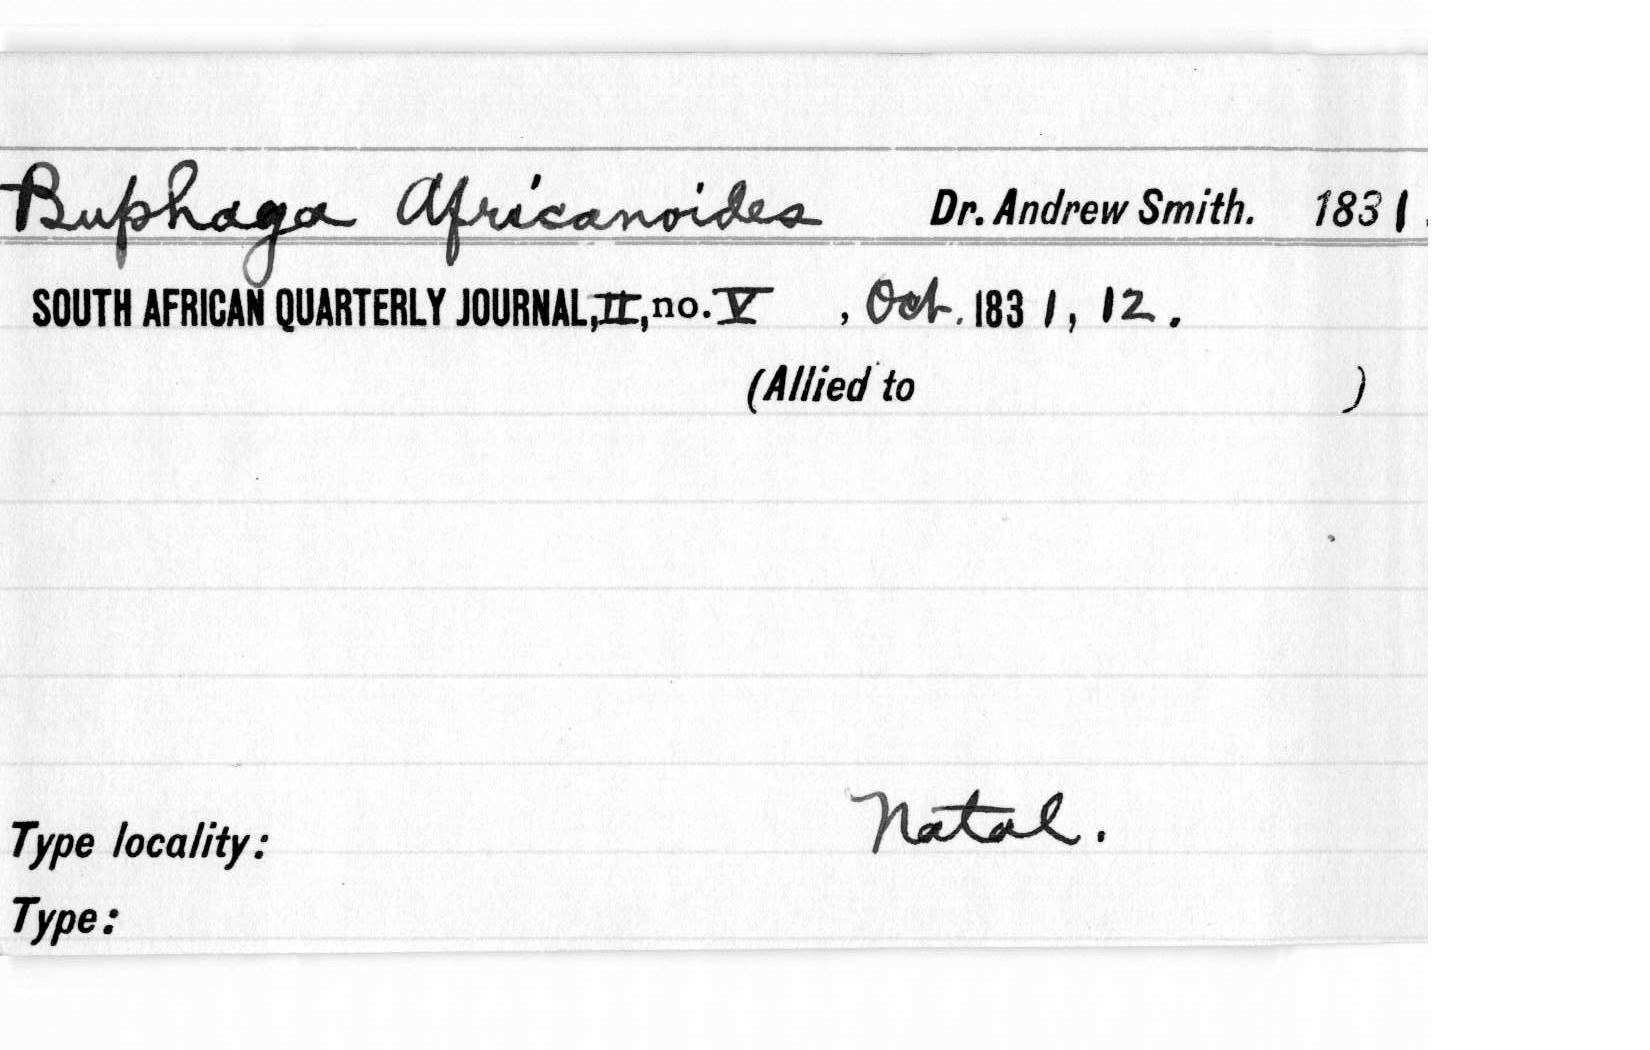 Buphaga Africanoides Dr. Andrew Smith. 1831.
SOUTH AFRICAN QUARTERLY JOURNAL, II, no. V , Oct. 1831, 12.
(Allied to )
Natal.
Type locality:
Type: